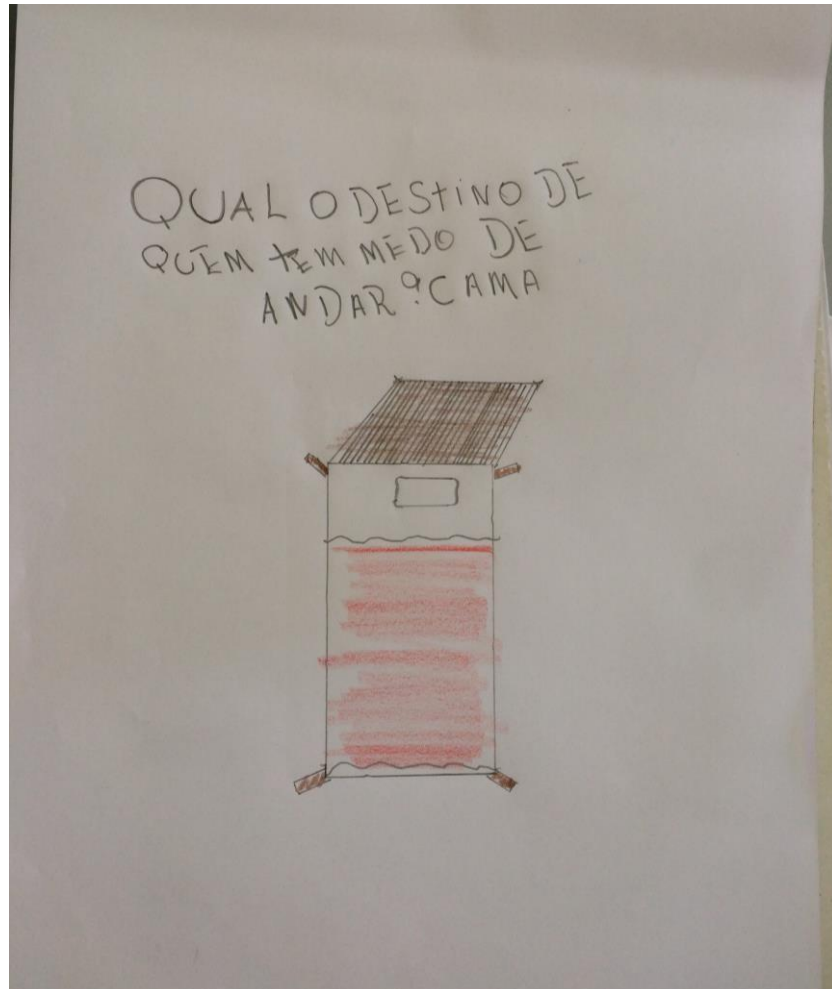 QUAL O DESTINO DE
QUEM TEM MEDO DE
ANDAR? CAMA